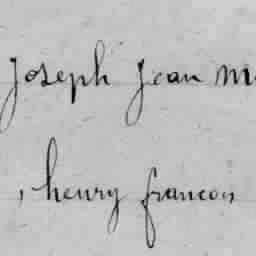 Joseph Jean
, henry francois